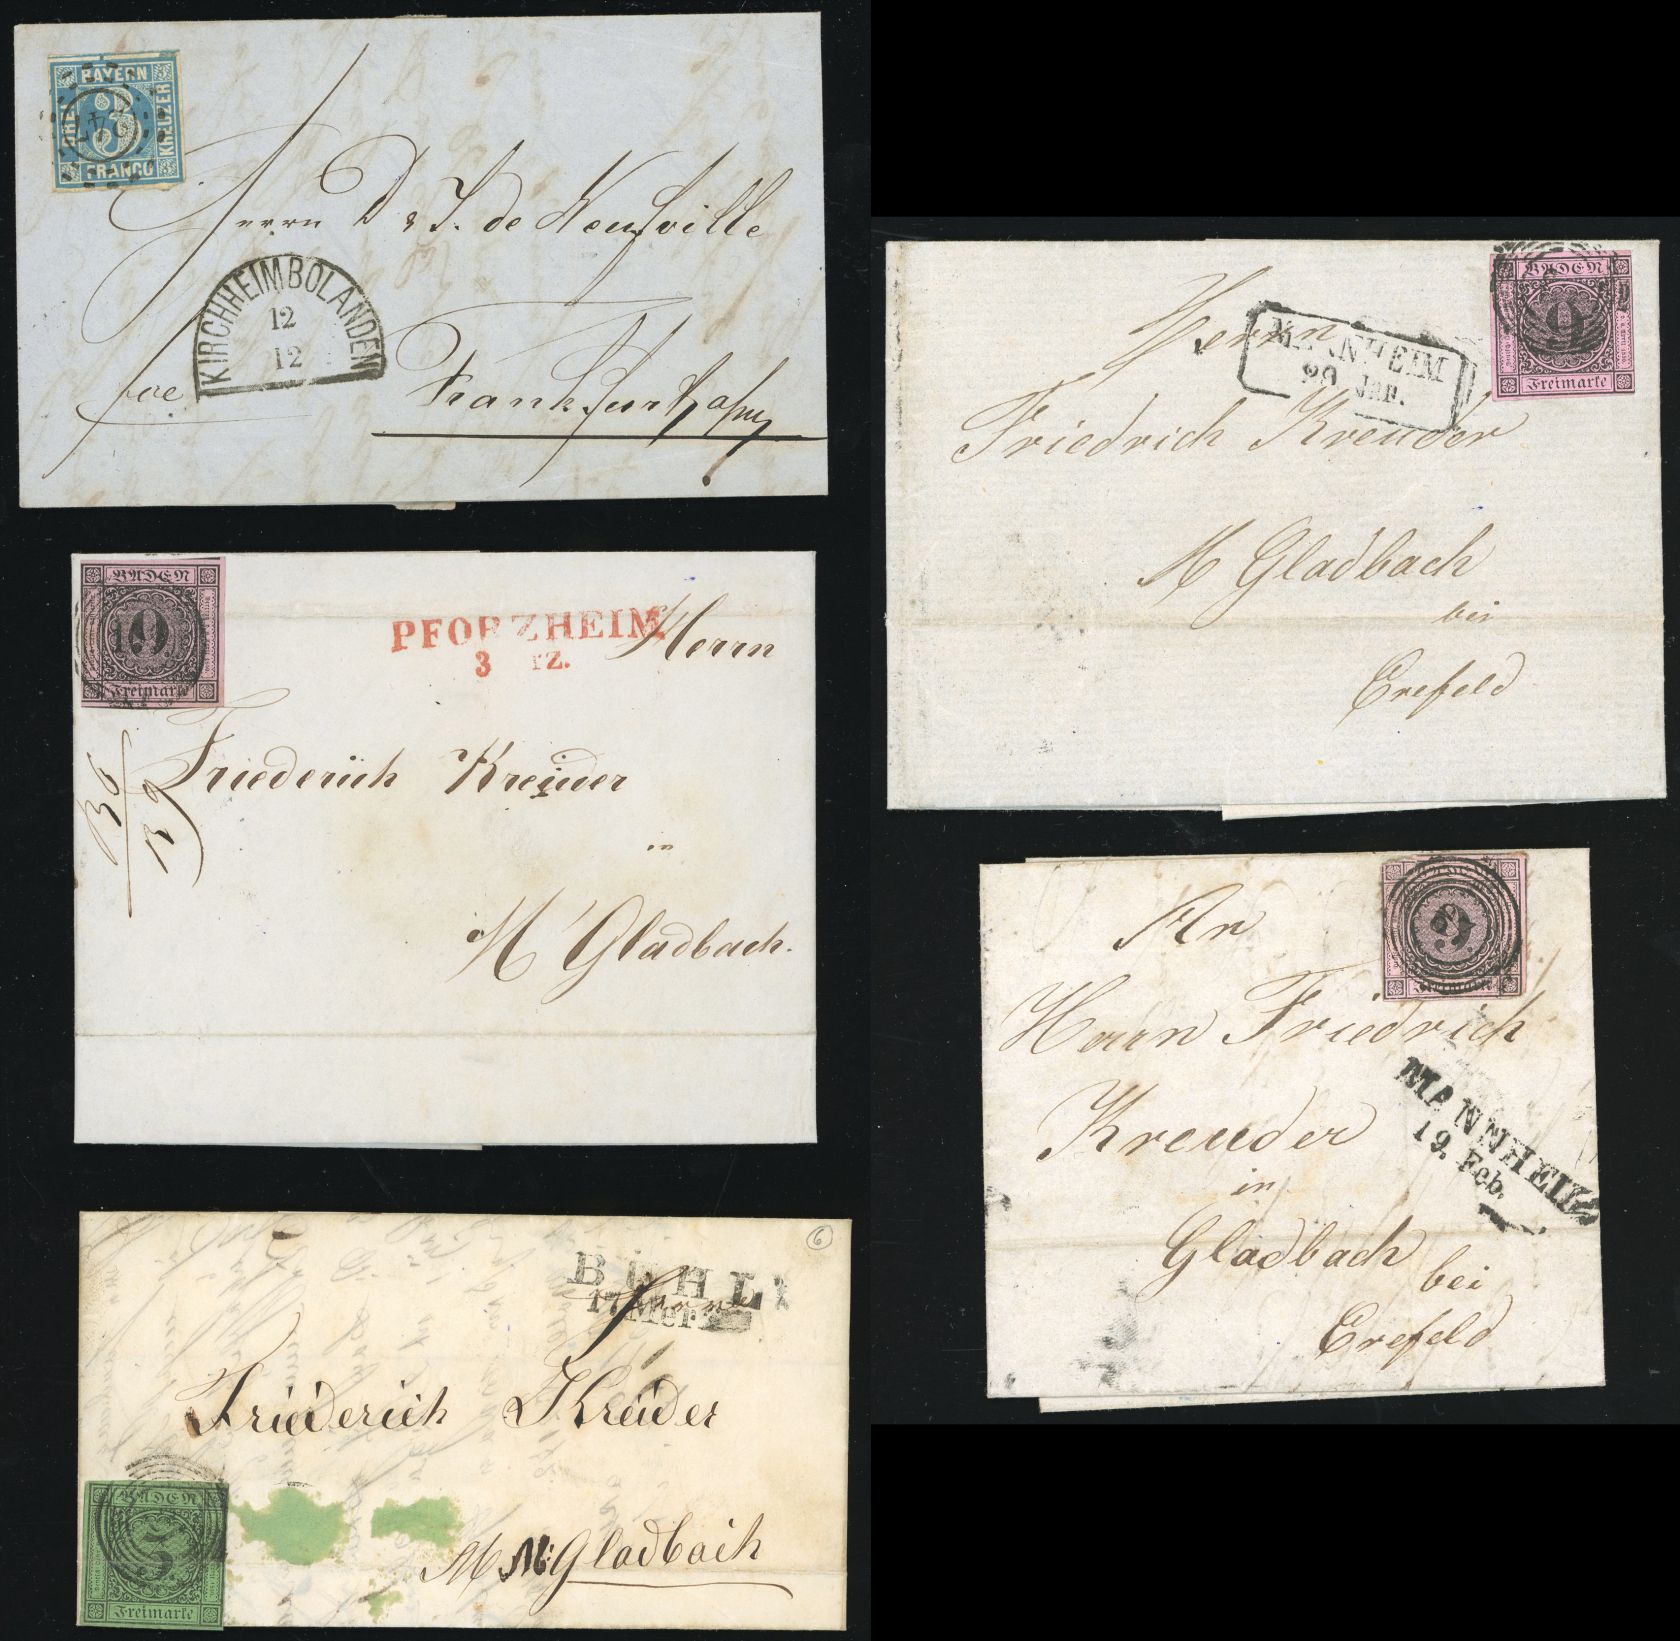 BAYERN
DREI
3
KREUZER
FRANCO
Herrn D & J. de Neufville
KIRCHHEIMBOLANDEN
12
12
Frankfurt a/m
BADEN
9
Freimarke
PFORZHEIM
3 rz.
Herrn
Friederich Kreuder
in
M Gladbach.
BÜHL
17 Mer
Friederich Kreüder
BADEN
3
Freimarke
M M: Gladbach
6
BADEN
9
Freimarke
Herrn
MANNHEIM
20 Jan.
Friedrich Kreuder
M Gladbach
bei
Crefeld
9
An
Herrn Friedrich
Kreuder
MANNHEIM
19. Feb.
in
Gladbach
bei
Crefeld